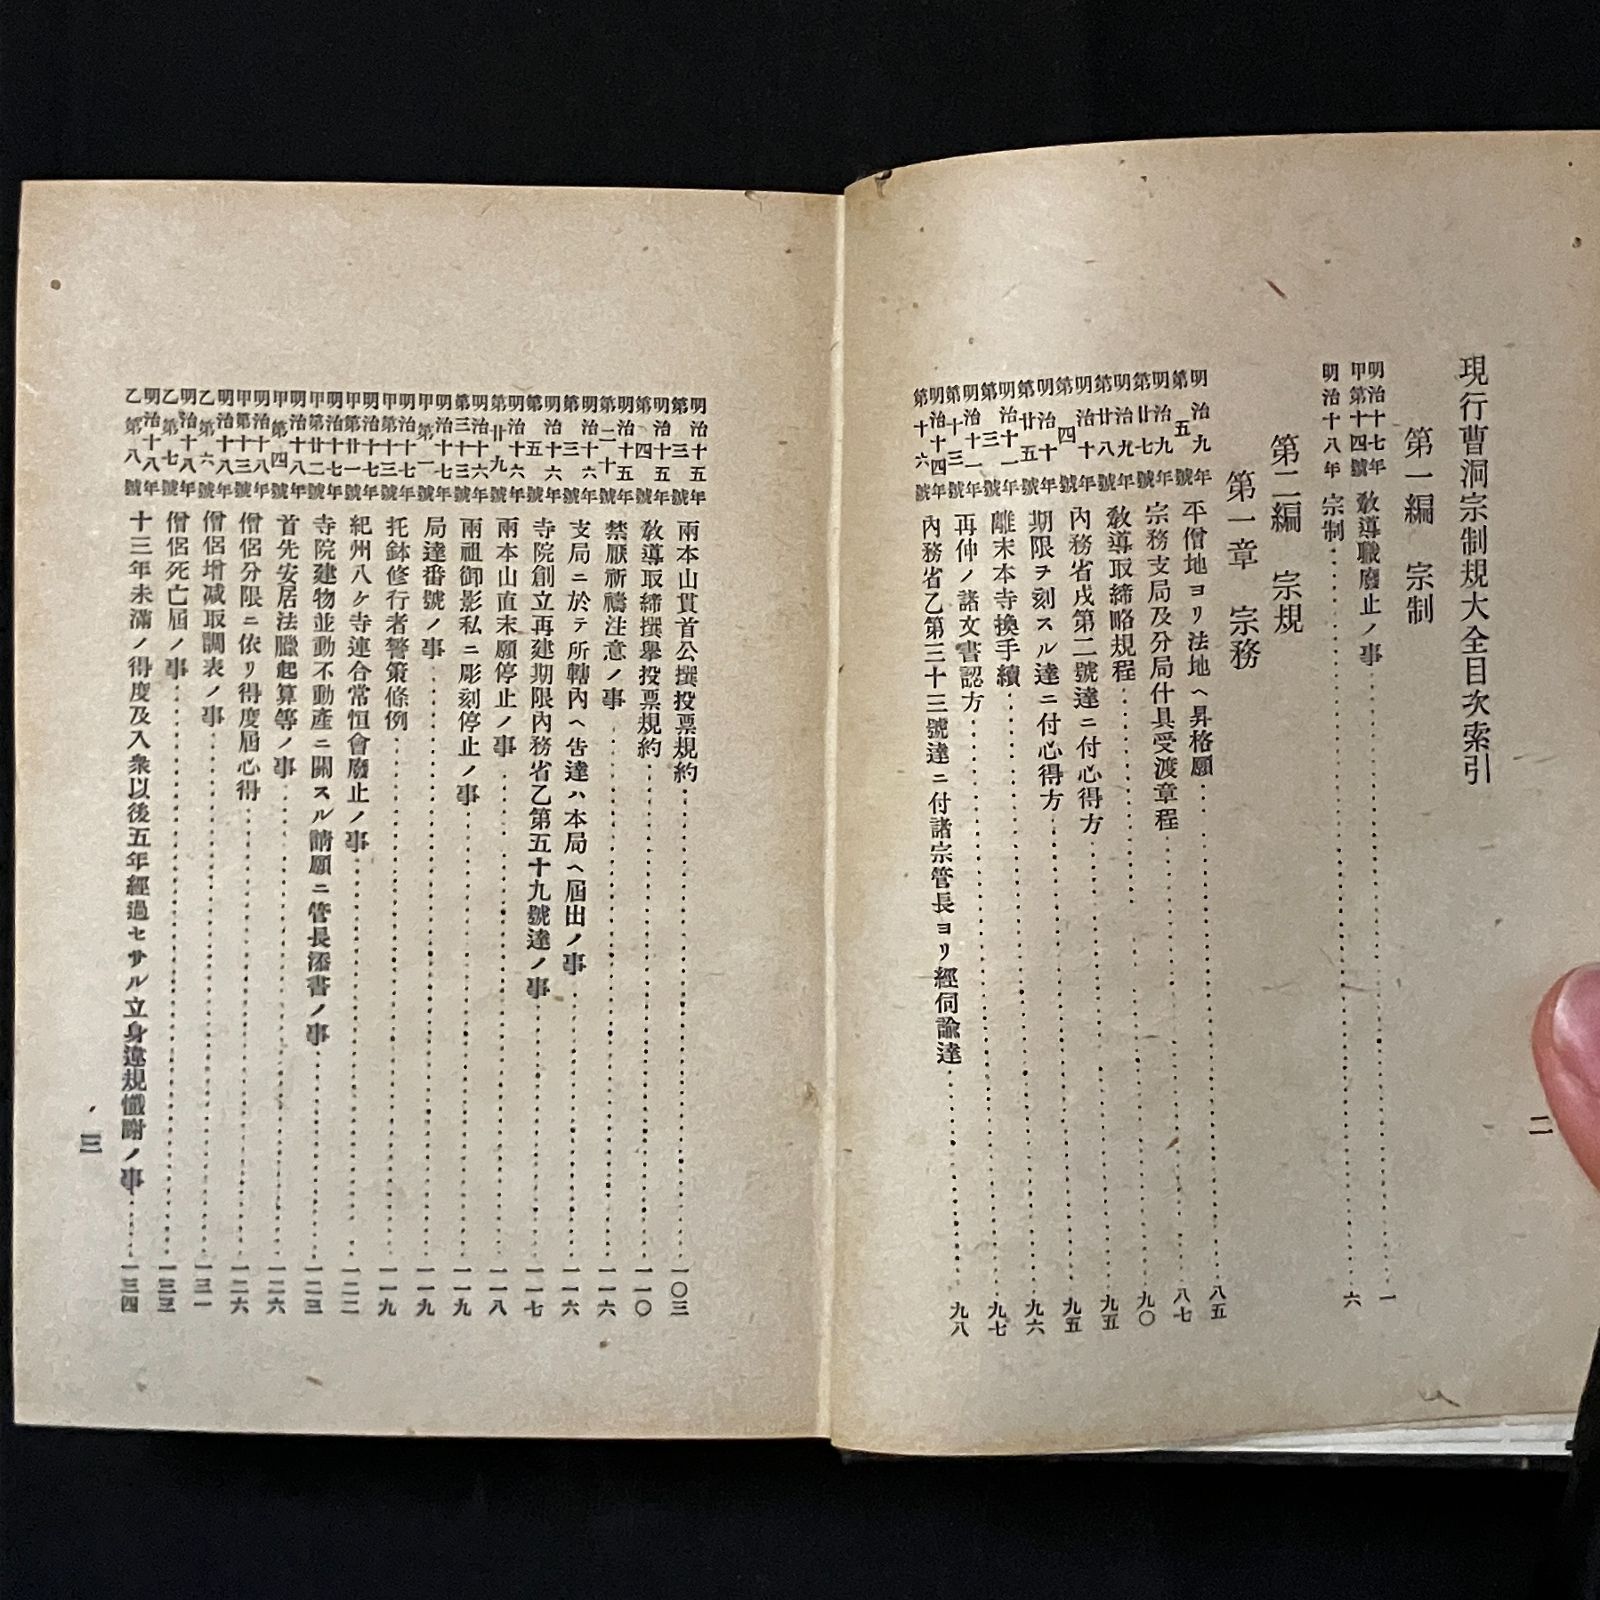 現行曹洞宗制規大全目次索引
第一編　宗制
明治十七年甲第十四號　教導職廢止ノ事　一
明治十八年　宗制　六
第二編　宗規
第一章　宗務
明治九年第五號　平僧地ヨリ法地ヘ昇格願　八五
明治九年第廿七號　宗務支局及分局什具受渡章程　八七
明治九年第廿八號　教導取締略規程　九〇
明治十年第四號　內務省戌第二號達ニ付心得方　九五
明治十年第廿五號　期限ヲ刻スル達ニ付心得方　九五
明治十一年第三號　離末本寺換手續　九六
明治十一年第十三號　再伸ノ諸文書認方　九七
明治十四年第十六號　內務省乙第三十三號達ニ付諸宗管長ヨリ經伺諭達　九八
二
明治十五年第三號　兩本山貫首公撰投票規約　一〇三
明治十五年第四號　教導取締撰擧投票規約　一一〇
明治十五年第二十號　禁厭祈禱注意ノ事　一一六
明治十六年第三號　支局ニ於テ所轄內ヘ告達ハ本局ヘ屆出ノ事　一一六
明治十六年第五號　寺院創立再建期限內務省乙第五十九號達ノ事　一一七
明治十六年第廿九號　兩本山直末願停止ノ事　一一八
明治十六年第三十三號　兩祖御影私ニ彫刻停止ノ事　一一九
明治十七年甲第一號　局達番號ノ事　一一九
明治十七年甲第十三號　托鉢修行者警策條例　一一九
明治十七年甲第廿一號　紀州八ケ寺連合常恒會廢止ノ事　一二二
明治十七年甲第廿二號　寺院建物並動不動產ニ關スル請願ニ管長添書ノ事　一二三
明治十八年甲第四號　首先安居法臘起算等ノ事　一二六
明治十八年甲第十三號　僧侶分限ニ依リ得度屆心得　一二六
明治十八年乙第六號　僧侶增減取調表ノ事　一三一
明治十八年乙第七號　僧侶死亡屆ノ事　一三三
明治十八年乙第八號　十三年未滿ノ得度及入衆以後五年經過セサル立身違規懺謝ノ事　一三四
三